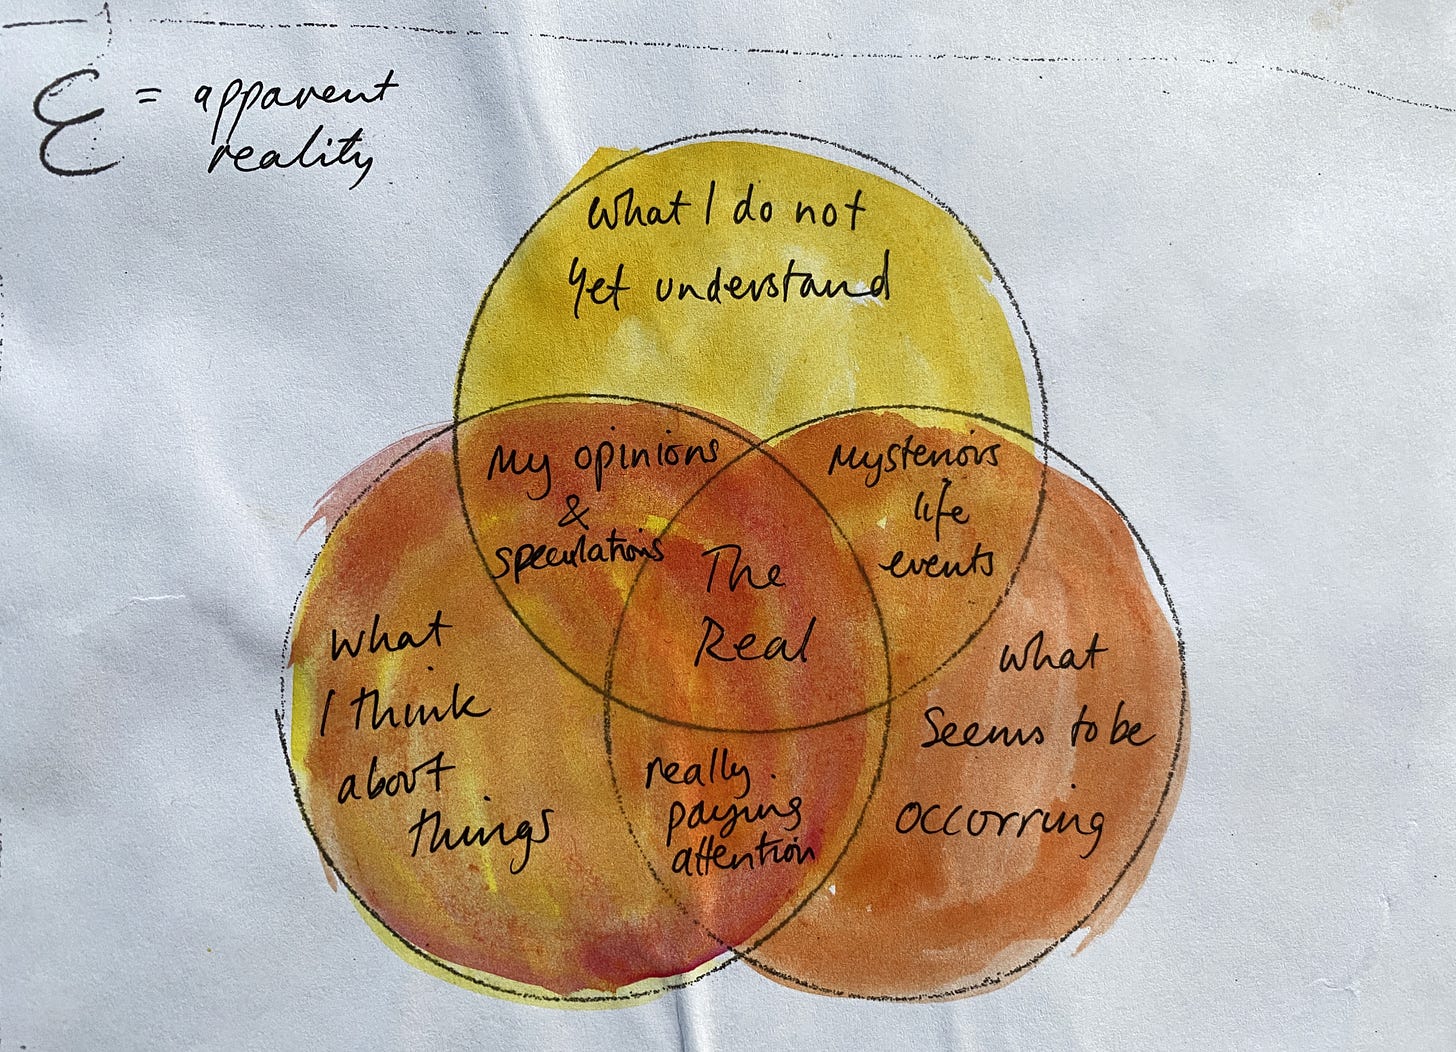 Ɛ = apparent
reality
What I do not
Yet understand
My opinions
&
speculations
Mysterious
life
events
The
Real
What
I think
about
things
what
Seems to be
occorring
really
paying
attention